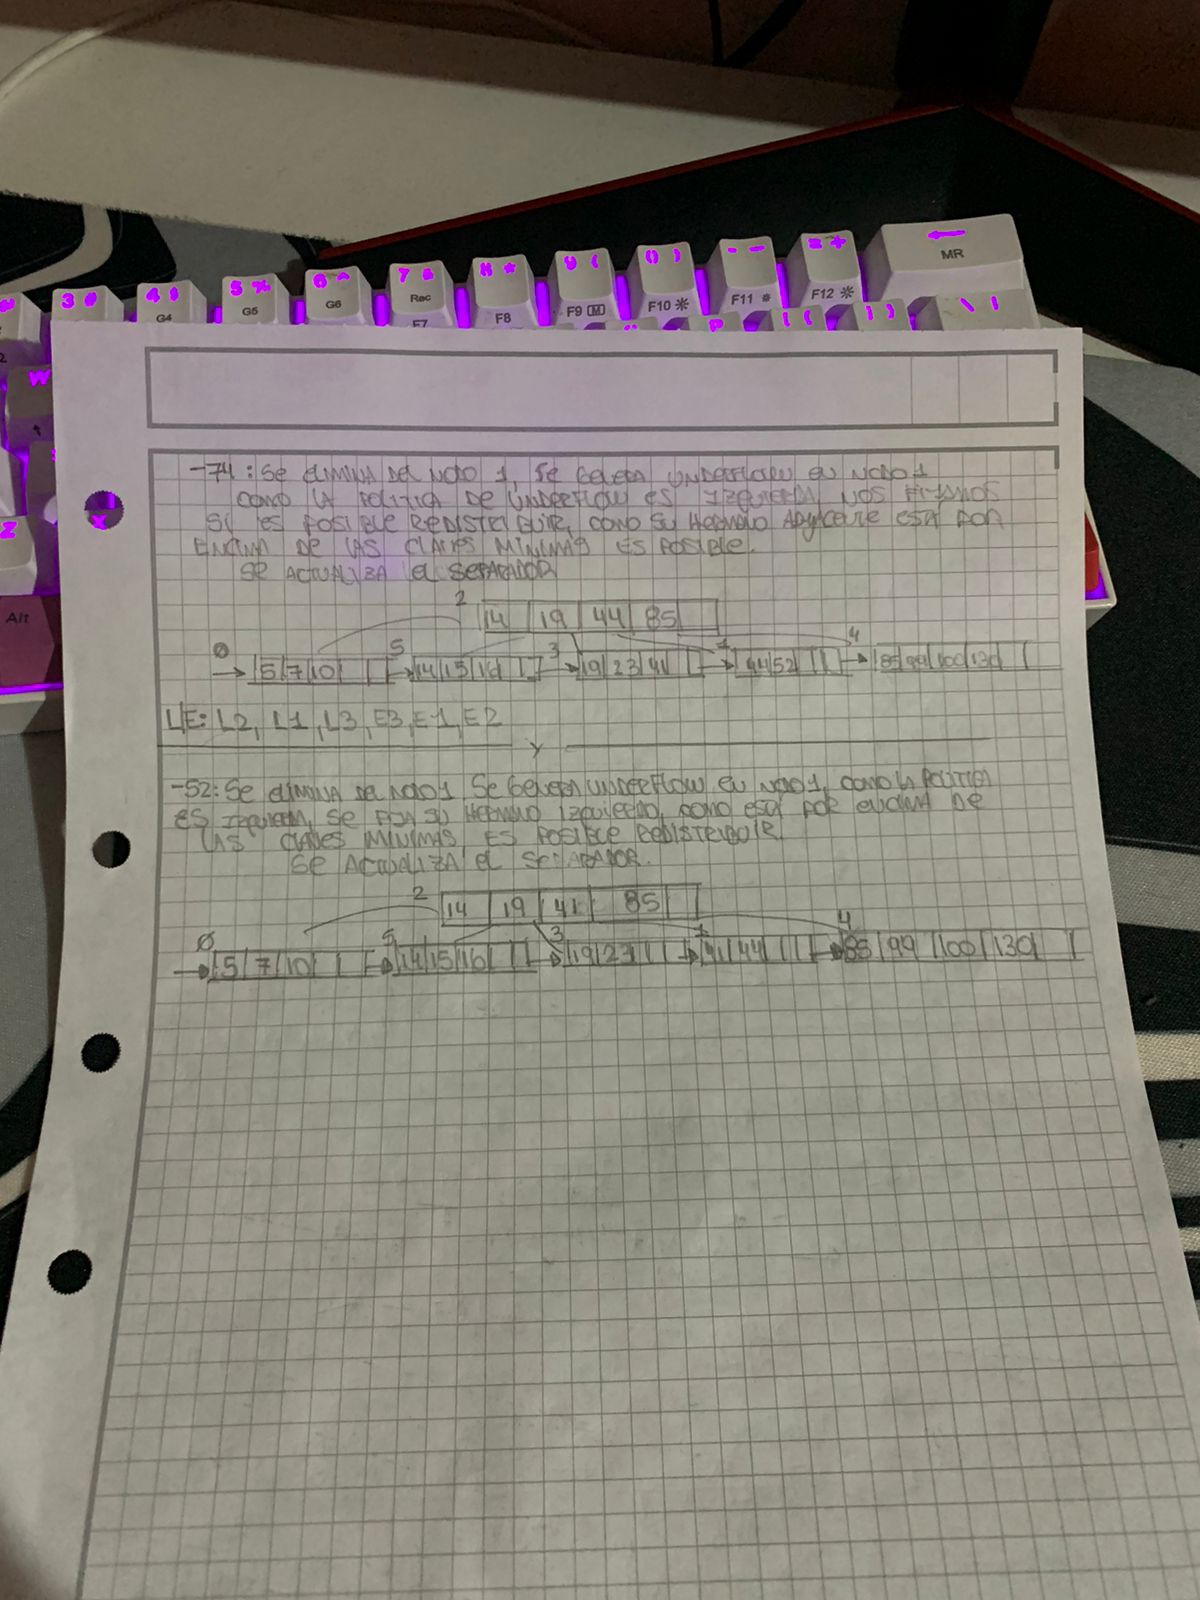 3 #
4 $
5 %
6 ^
7 &
8 *
9 (
0 )
- -
= +
G4
G5
G6
Rec
F7
F8
F9
F10
F11
F12
MR
W
Z
X
Alt
P
[ {
] }
\ |
-74: SE ELIMINA DEL NODO 1, SE GENERA UNDERFLOW EN NODO 1
COMO LA POLITICA DE UNDERFLOW ES IZQUIERDA, NOS FIJAMOS
SI ES POSIBLE REDISTRIBUIR, COMO SU HERMANO ADYACENTE ESTÁ POR
ENCIMA DE LAS CLAVES MINIMAS ES POSIBLE.
SE ACTUALIZA EL SEPARADOR
2 14 19 44 85
0 5 7 10 5 14 15 16 3 19 23 41 1 44 52 4 85 99 100 130
LE: L2, L1, L3, E3, E1, E2
-52: SE ELIMINA DEL NODO 1 SE GENERA UNDERFLOW EN NODO 1, COMO LA POLITICA
ES IZQUIERDA, SE FIJA SU HERMANO IZQUIERDO, COMO ESTÁ POR ENCIMA DE
LAS CLAVES MINIMAS ES POSIBLE REDISTRIBUIR
SE ACTUALIZA EL SEPARADOR.
2 14 19 41 85
0 5 7 10 5 14 15 16 3 19 23 1 41 44 4 85 99 100 130